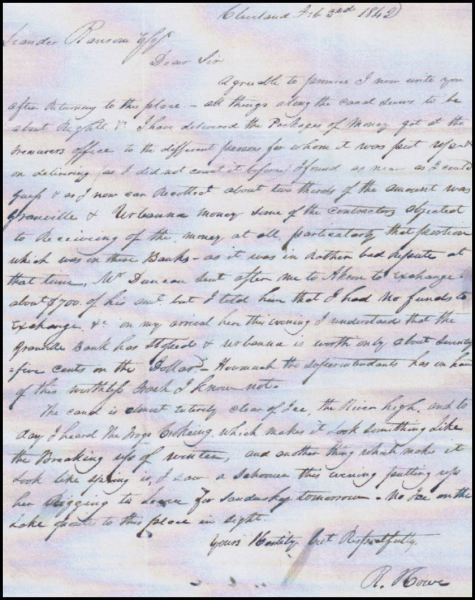 Cleveland Feb 2nd 1842
Leander Ransom Esqr
Dear Sir
Agreeable to promice I now write you
after returning to this place - all things along the canal seems to be
about Right &c I have delivered the Packages of Money got at the
treasurers office to the different persons for whom it was put up and
on delivering (as I did not count it before) I found as near as I could
Guess & as I now can Recollect about two thirds of the amount was
Granville & Urbanna money some of the contractors objected
to Receiving of the money at all, particularly that portion
which was on those Banks - as it was in rather bad repute at
that time, Mr Duncan sent after me to Akron to Exchange
about $700. of his amt but I told him that I had no funds to
Exchange, &c on my arrival here this evening I understand that the
Granville Bank has stoped & Urbanna is worth only about Seventy
=five cents on the Dollar - How much the superintendants has in han
of this worthless trash I know not.
The canal is almost entirely clear of Ice, the River high, and to
day I heard the Frogs Croking, which makes it Look something Like
the Breaking up of winter, and another thing which make it
Look like spring is, I saw a schooner this evening putting up
her Rigging to Leave for Sandusky tomorrow - No Ice on the
Lake opposit to this place in sight.
Yours Hastily but Respectfully
R. Howe